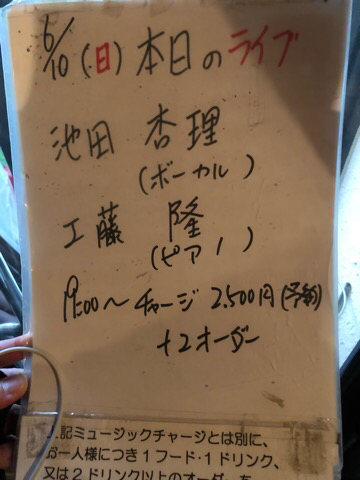 6/10 (日) 本日のライブ
池田 杏理
(ボーカル)
工藤 隆
(ピアノ)
19:00〜 チャージ 2,500円(予約)
+2オーダー
上記ミュージックチャージとは別に、
お一人様につき1フード・1ドリンク、
又は2ドリンク以上のオーダーを